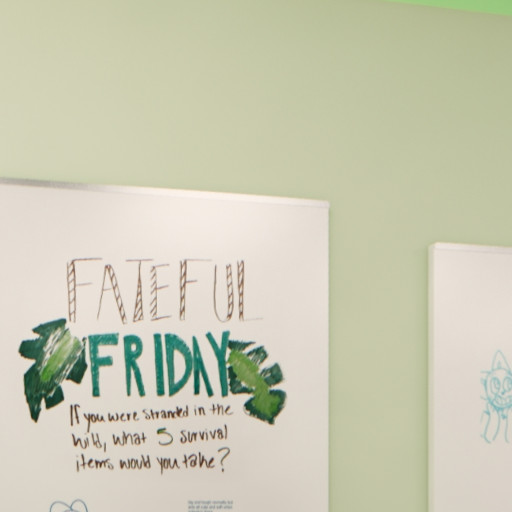 FATEFUL
FRIDAY
If you were stranded in the
wild, what 5 survival
items would you take?